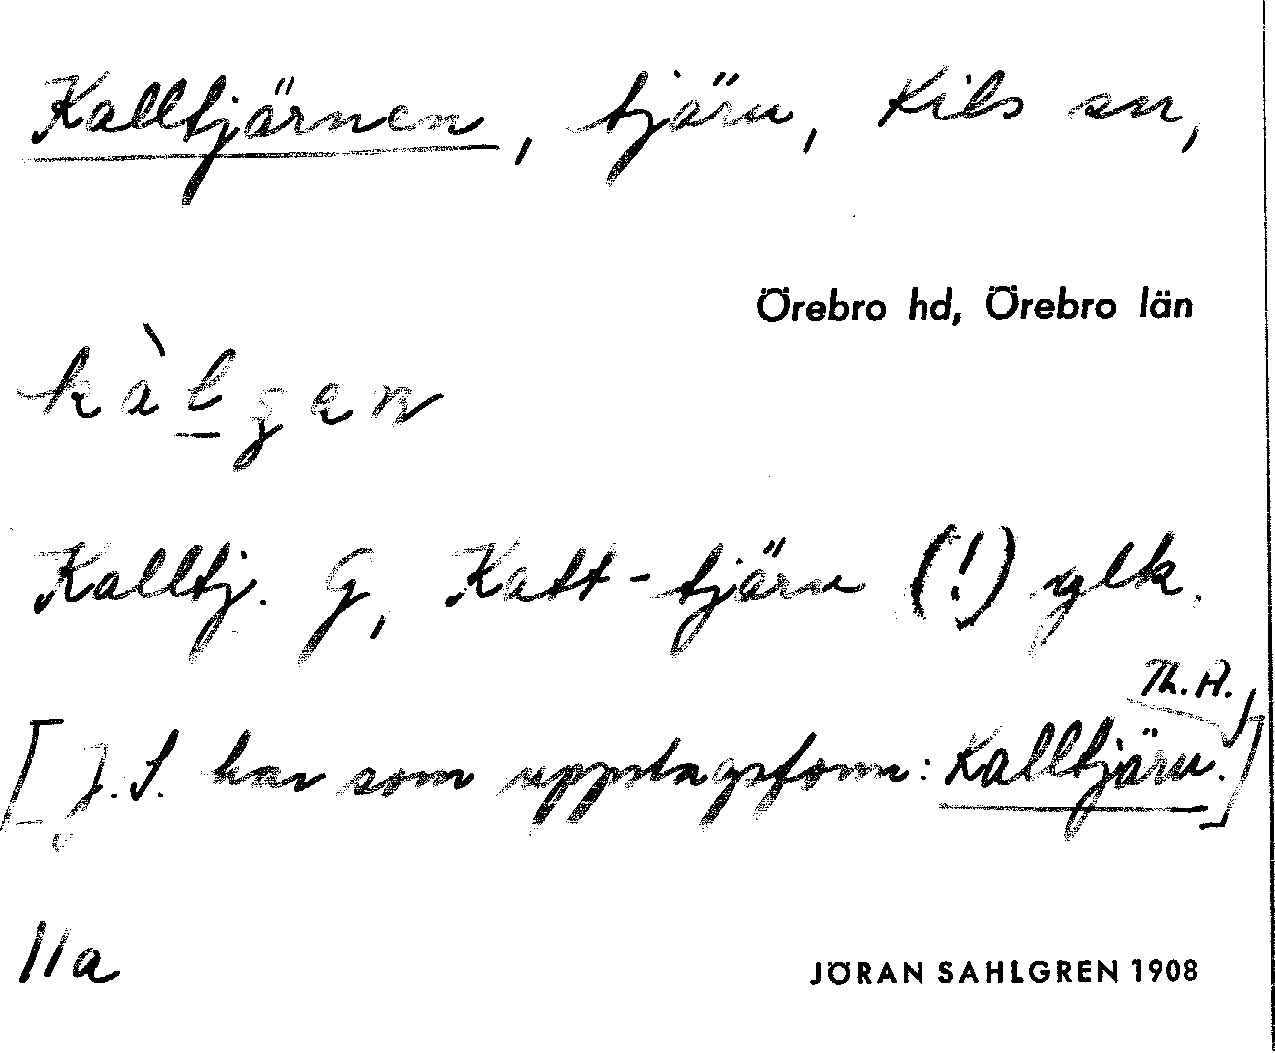 Kalltjärnen, tjärn, Kils sn,
Örebro hd, Örebro län
kàlʒan
Kalltj. G, Katt-tjärn (!) glk.
Th. A.
[J. S. har som uppslagsform: Kalltjärn.]
11a
JÖRAN SAHLGREN 1908